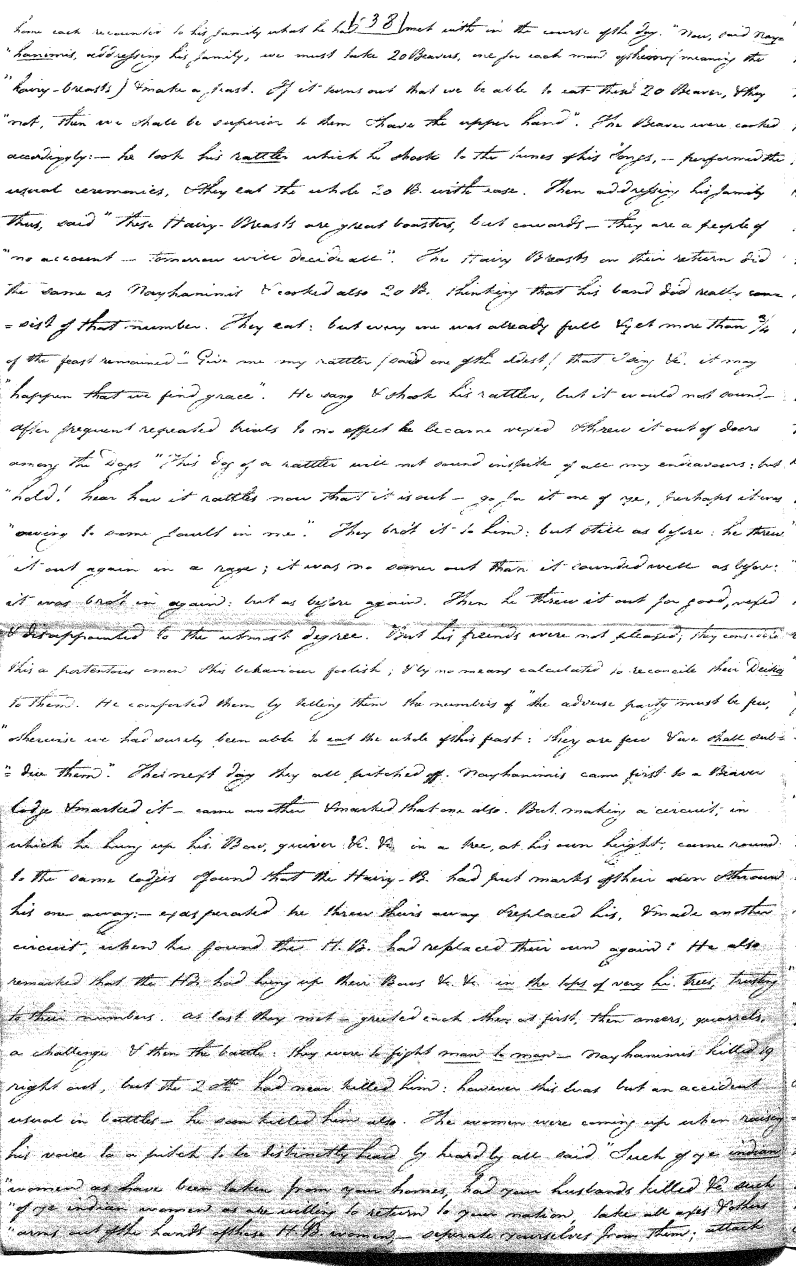 38
home each recounted to his family what he had met with in the course of the day. "Now, said Naya
"hanimis, addressing his family, we must take 20 Beavers, one for each man of them (meaning the
"hairy-breasts) & make a feast. If it turns out that we be able to eat these 20 Beaver, & they
"not, then we shall be superior to them & have the upper hand". The Beaver were cooked
accordingly:— he took his rattler which he shook to the tunes of his songs,— performed the
usual ceremonies, & they eat the whole 20 B. with ease. Then addressing his family
thus, said "these Hairy-Breasts are great boasters, but cowards— they are a people of
"no account— tomorrow will decide all". The Hairy Breasts on their return did
the same as Nayhanimis & cooked also 20 B. thinking that his band did really con=
=sist of that number. They eat: but every one was already full & yet more than 3/4
of the feast remained— "Give me my rattler (said one of the oldest) that I sing &c. it may
"happen that we find grace". He sang & shook his rattler, but it would not sound—
after frequent repeated trials to no effect he became vexed & threw it out of doors
among the Dogs "This dog of a rattler will not sound in spite of all my endeavours: but
"hold! hear how it rattles now that it is out— go for it one of ye, perhaps it was
"owing to some fault in me." They bro't it to him: but still as before: he threw
it out again in a rage; it was no sooner out than it sounded well as before:
it was bro't in again: but as before again. Then he threw it out for good, vexed
& disappointed to the utmost degree. But his friends were not pleased; they
this a portentous omen this behaviour foolish; & by no means calculated to reconcile their Deities
to them. He comforted them by telling them the numbers of "the adverse party must be few,
"otherwise we had surely been able to eat the whole of this feast: they are few & we shall sub=
"=due them". The next day they all pitched off. Nayhanimis came first to a Beaver
lodge & marked it— came another & marked that one also. But making a circuit, in
which he hung up his Bow, quiver &c. &c. in a tree, at his own height, came round
to the same lodges & found that the Hairy-B. had put marks of their own & thrown
his one away:— exasperated he threw theirs away & replaced his, & made another
circuit, when he found the H. B. had replaced their own again! He also
remarked that the HBs had hung up their Bows &c. &c. in the tops of very hi. trees, trusting
to their numbers. At last they met— greeted each other at first, then ansers, quarrels,
a challenge & then the battle: they were to fight man to man— Nayhanimis killed 19
right out, but the 20th had near killed him: however this was but an accident
usual in battles— he soon killed him also. The women were coming up when raising
his voice to a pitch to be distinctly heard by heard by all said "Such of ye indian
"women as have been taken from your homes, had your husbands killed &c. such
"of ye indian women as are willing to return to your nation take all axes & others
"arms out of the hands of these H. B. women,— seperate yourselves from them; attack